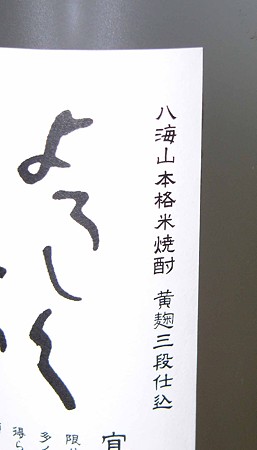 八海山本格米焼酎 黄麹三段仕込
よろしく
宜
限
多く
得ら